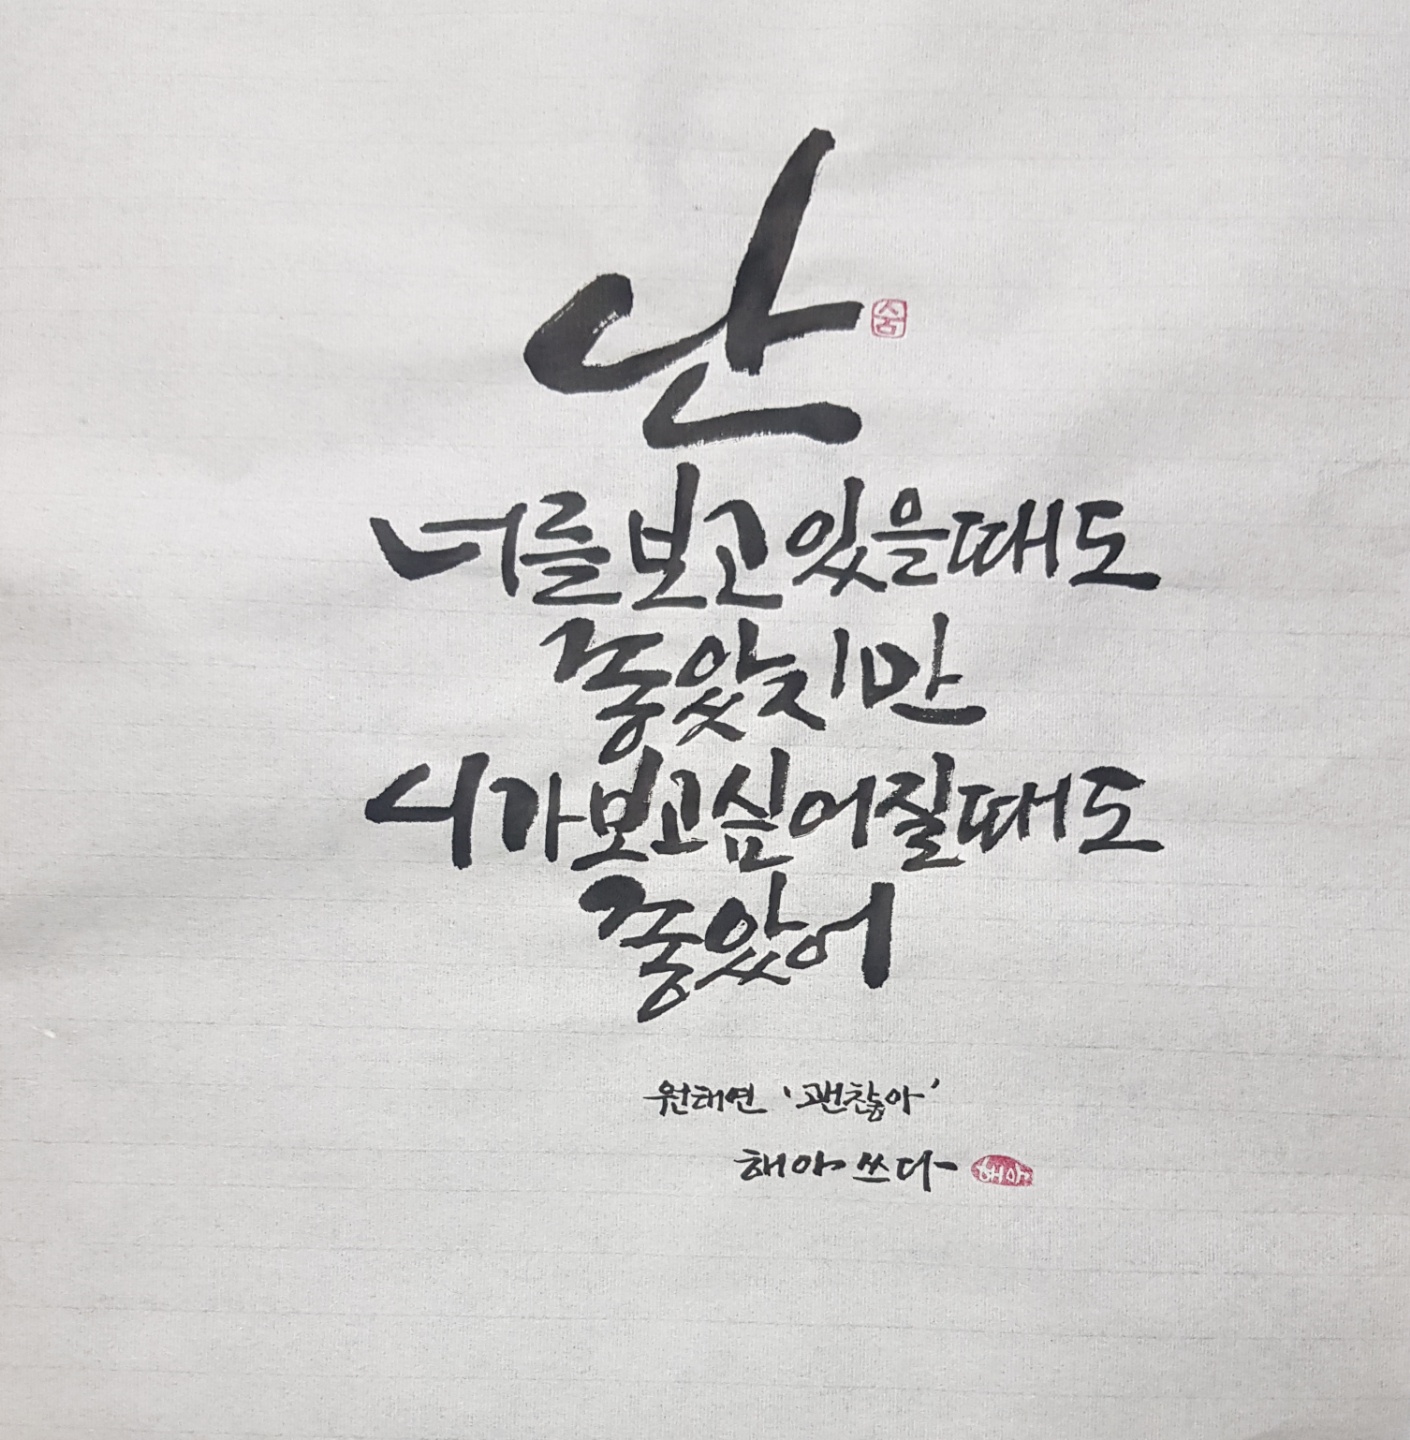 난
숨
너를 보고 있을 때도
좋았지만
니가 보고 싶어질 때도
좋았어
원태연 '괜찮아'
해아 쓰다
해아